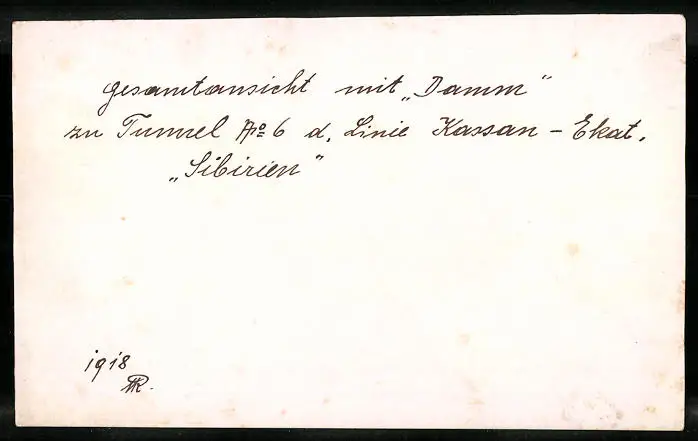 Gesamtansicht mit „Damm"
zu Tunnel No 6 d. Linie Kassan - Ekat.
„Sibirien"
1918